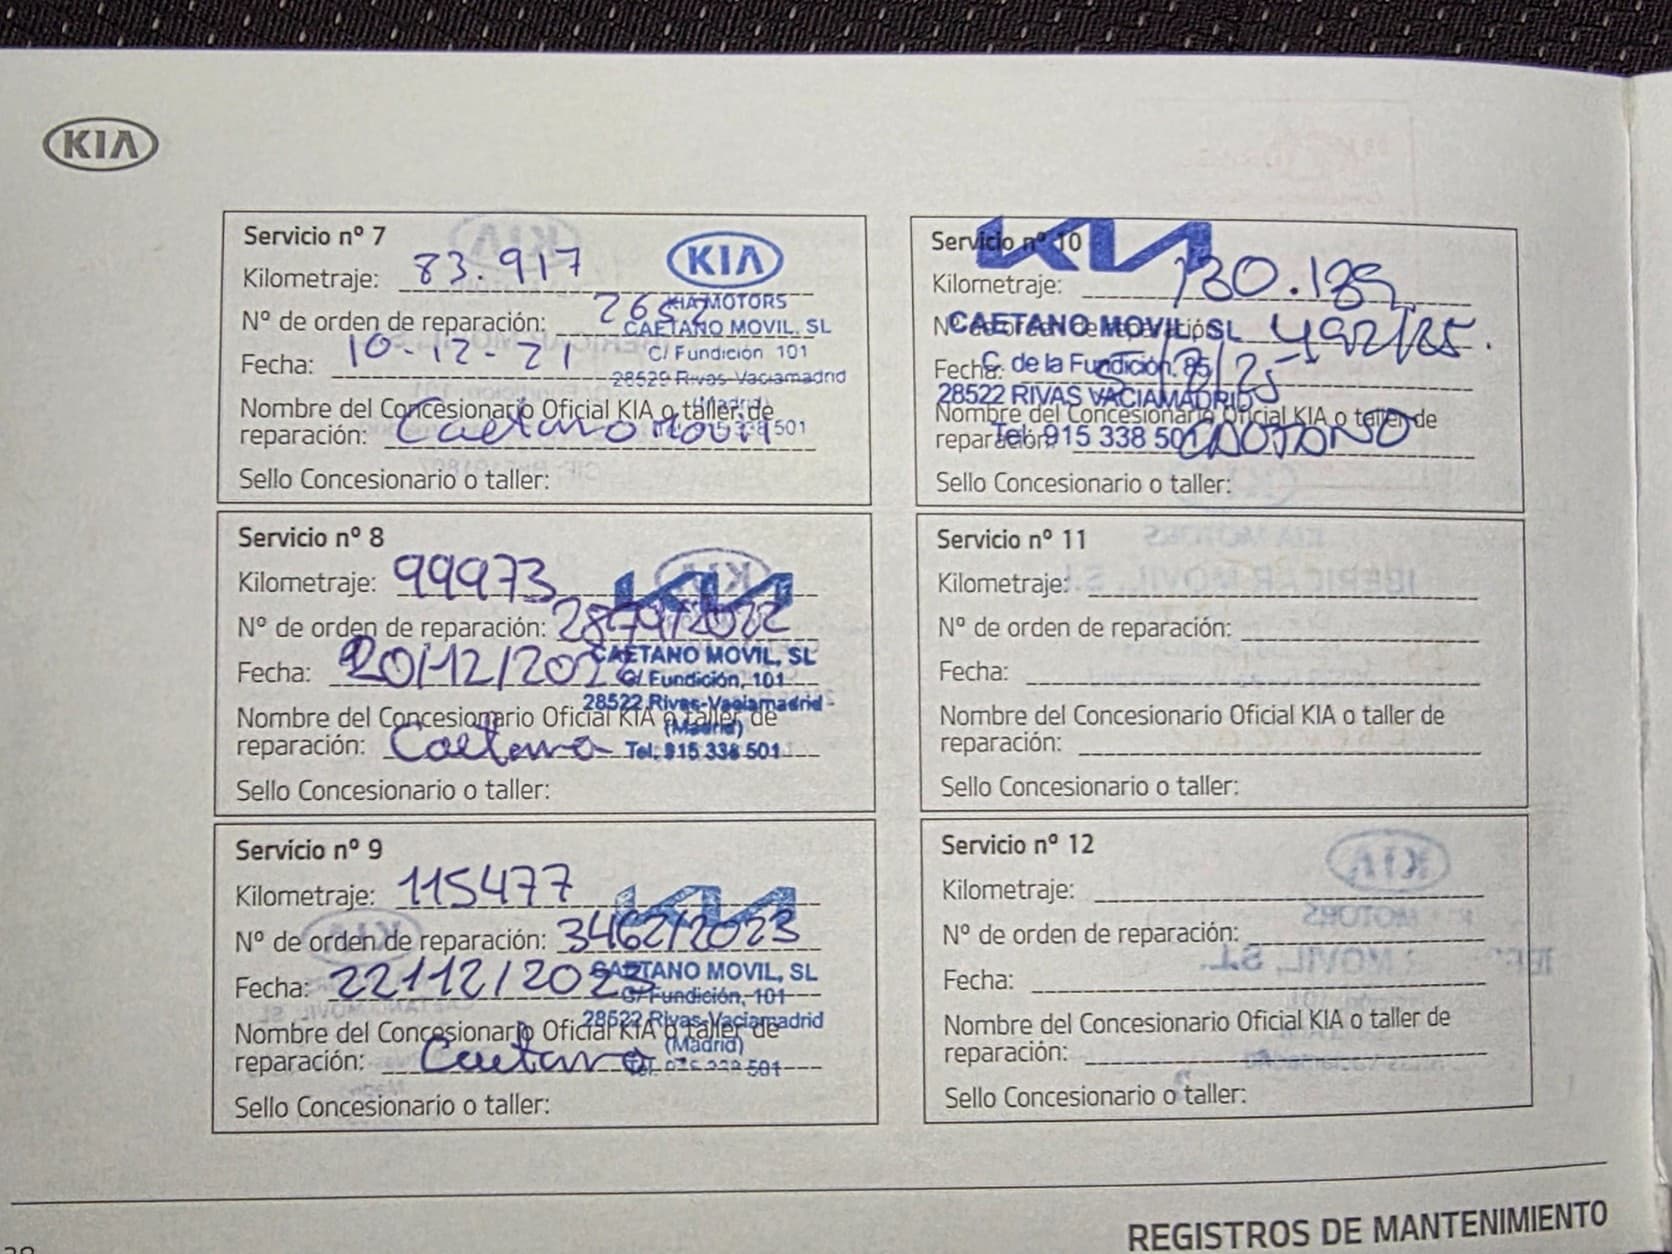 KIA
Servicio nº 7
KIA
Kilometraje: 83.917
KIA MOTORS
Nº de orden de reparación:
CAETANO MOVIL, SL
Fecha: 10-12-21
C/ Fundición 101
28529 Rivas-Vaciamadrid
Nombre del Concesionario Oficial KIA o taller de
reparación: Caetano movil
Sello Concesionario o taller:
Servicio nº 8
Kilometraje: 99973
KIA
Nº de orden de reparación: /2022
Fecha: 20/12/202
CAETANO MOVIL, SL
C/ Fundición, 101
28522 Rivas-Vaciamadrid
Nombre del Concesionario Oficial KIA o taller de
(Madrid)
reparación: Caetano
Tel: 915 338 501
Sello Concesionario o taller:
Servicio nº 9
Kilometraje: 115477
KIA
Nº de orden de reparación: 3462/2023
Fecha: 22/12/2023
CAETANO MOVIL, SL
C/ Fundición, 101
28522 Rivas-Vaciamadrid
Nombre del Concesionario Oficial KIA o taller de
(Madrid)
reparación: Caetano
Sello Concesionario o taller:
Servicio nº 10
KIA
Kilometraje: 130.189
Nº de orden de reparación: 492/25.
CAETANO MOVIL, SL
Fecha:
C. de la Fundición, 85
28522 RIVAS VACIAMADRID
Nombre del Concesionario Oficial KIA o taller de
reparación:
Tel: 915 338 501
Sello Concesionario o taller:
Servicio nº 11
Kilometraje:
Nº de orden de reparación:
Fecha:
Nombre del Concesionario Oficial KIA o taller de
reparación:
Sello Concesionario o taller:
Servicio nº 12
Kilometraje:
Nº de orden de reparación:
Fecha:
Nombre del Concesionario Oficial KIA o taller de
reparación:
Sello Concesionario o taller:
REGISTROS DE MANTENIMIENTO